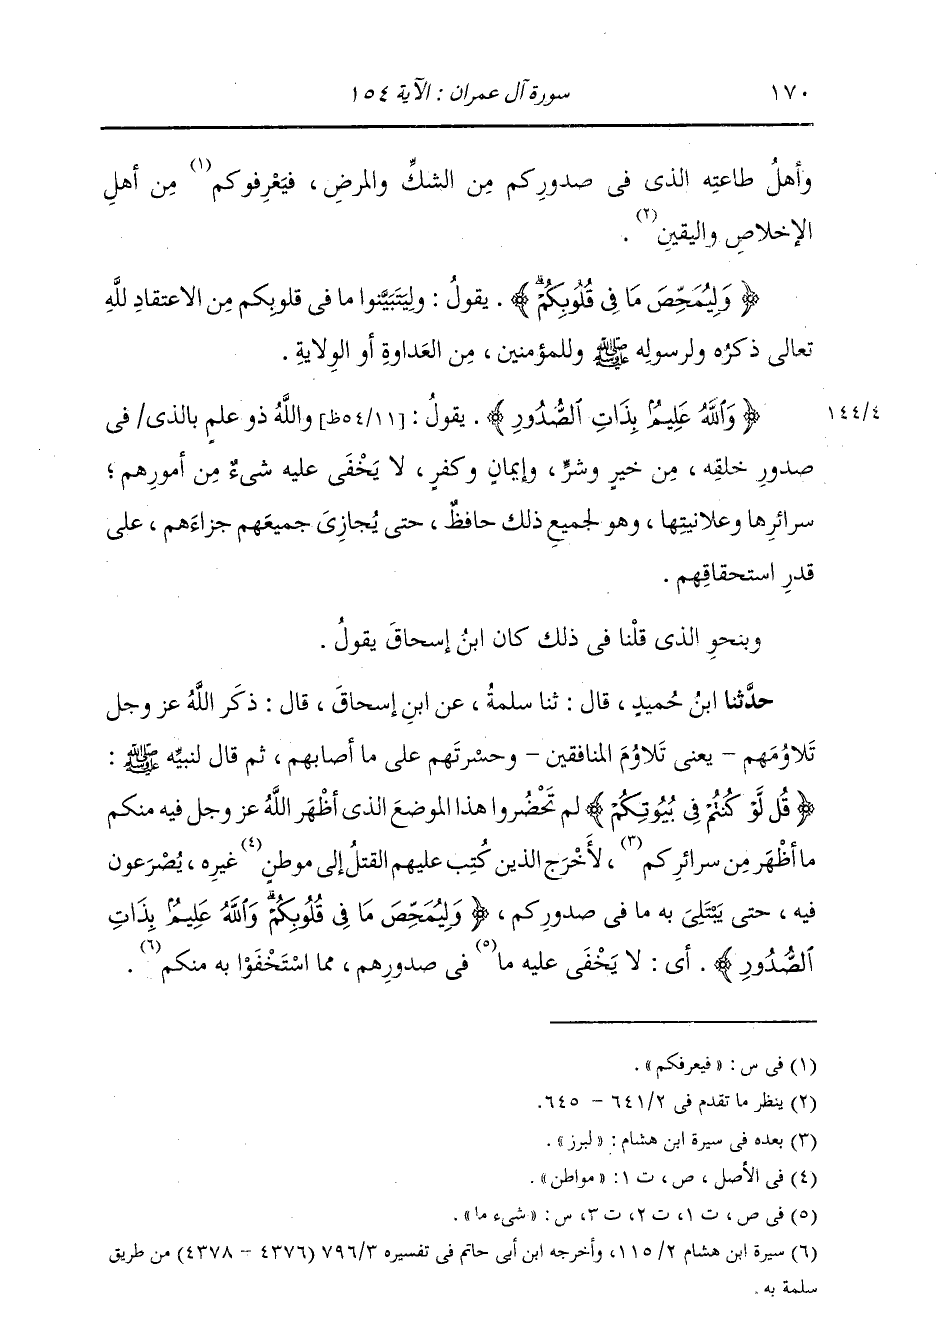 ١٧٠ سورة آل عمران : الآية ١٥٤
وأهلُ طاعتِه الذى فى صدورِكم مِن الشكِّ والمرضِ ، فيَعْرِفوكم(١) مِن أهلِ
الإخلاصِ واليقينِ(٢) .
﴿ وَلِيُمَحِّصَ مَا فِى قُلُوبِكُمْۗ ﴾ . يقولُ : ولِيَتَبَيَّنوا ما فى قلوبِكم مِن الاعتقادِ للَّهِ
تعالى ذكرُه ولرسولِه ﷺ وللمؤمنين ، مِن العَداوةِ أو الوِلايةِ .
﴿ وَاللَّهُ عَلِيمٌۢ بِذَاتِ ٱلصُّدُورِ ﴾ . يقولُ : [٥٤/١١ظ] واللَّهُ ذو علمٍ بالذى/ فى ١٤٤/٤
صدورِ خلقِه ، مِن خيرٍ وشرٍّ ، وإيمانٍ وكفرٍ ، لا يَخْفَى عليه شىءٌ مِن أمورِهم ؛
سرائرِها وعلانيتِها ، وهو لجميعِ ذلك حافظٌ ، حتى يُجازِىَ جميعَهم جزاءَهم ، على
قدرِ استحقاقِهم .
وبنحوِ الذى قلْنا فى ذلك كان ابنُ إسحاقَ يقولُ .
حدَّثنا ابنُ حُميدٍ ، قال : ثنا سلمةُ ، عن ابنِ إسحاقَ ، قال : ذكَر اللَّهُ عز وجل
تَلاوُمَهم – يعنى تَلاوُمَ المنافقين – وحسْرتَهم على ما أصابهم ، ثم قال لنبيِّه ﷺ :
﴿ قُل لَّوْ كُنتُمْ فِى بُيُوتِكُمْ ﴾ لم تَحْضُروا هذا الموضعَ الذى أظْهَر اللَّهُ عز وجل فيه منكم
ما أظْهَر مِن سرائرِكم(٣) ، لأَخْرَج الذين كُتِب عليهم القتلُ إلى موطنٍ(٤) غيرِه ، يُصْرَعون
فيه ، حتى يَبْتَلِىَ به ما فى صدورِكم ، ﴿ وَلِيُمَحِّصَ مَا فِى قُلُوبِكُمْۗ وَٱللَّهُ عَلِيمٌۢ بِذَاتِ
ٱلصُّدُورِ ﴾ . أى : لا يَخْفَى عليه ما(٥) فى صدورِهم ، مما اسْتَخْفَوْا به منكم(٦) .
(١) فى س : « فيعرفكم » .
(٢) ينظر ما تقدم فى ٦٤١/٢ – ٦٤٥.
(٣) بعده فى سيرة ابن هشام : « لبرز » .
(٤) فى الأصل ، ص ، ت ١ : « مواطن » .
(٥) فى ص ، ت ١، ت ٢، ت ٣، س : « شىء ما » .
(٦) سيرة ابن هشام ١١٥/٢، وأخرجه ابن أبى حاتم فى تفسيره ٧٩٦/٣ (٤٣٧٦ – ٤٣٧٨) من طريق
سلمة به .